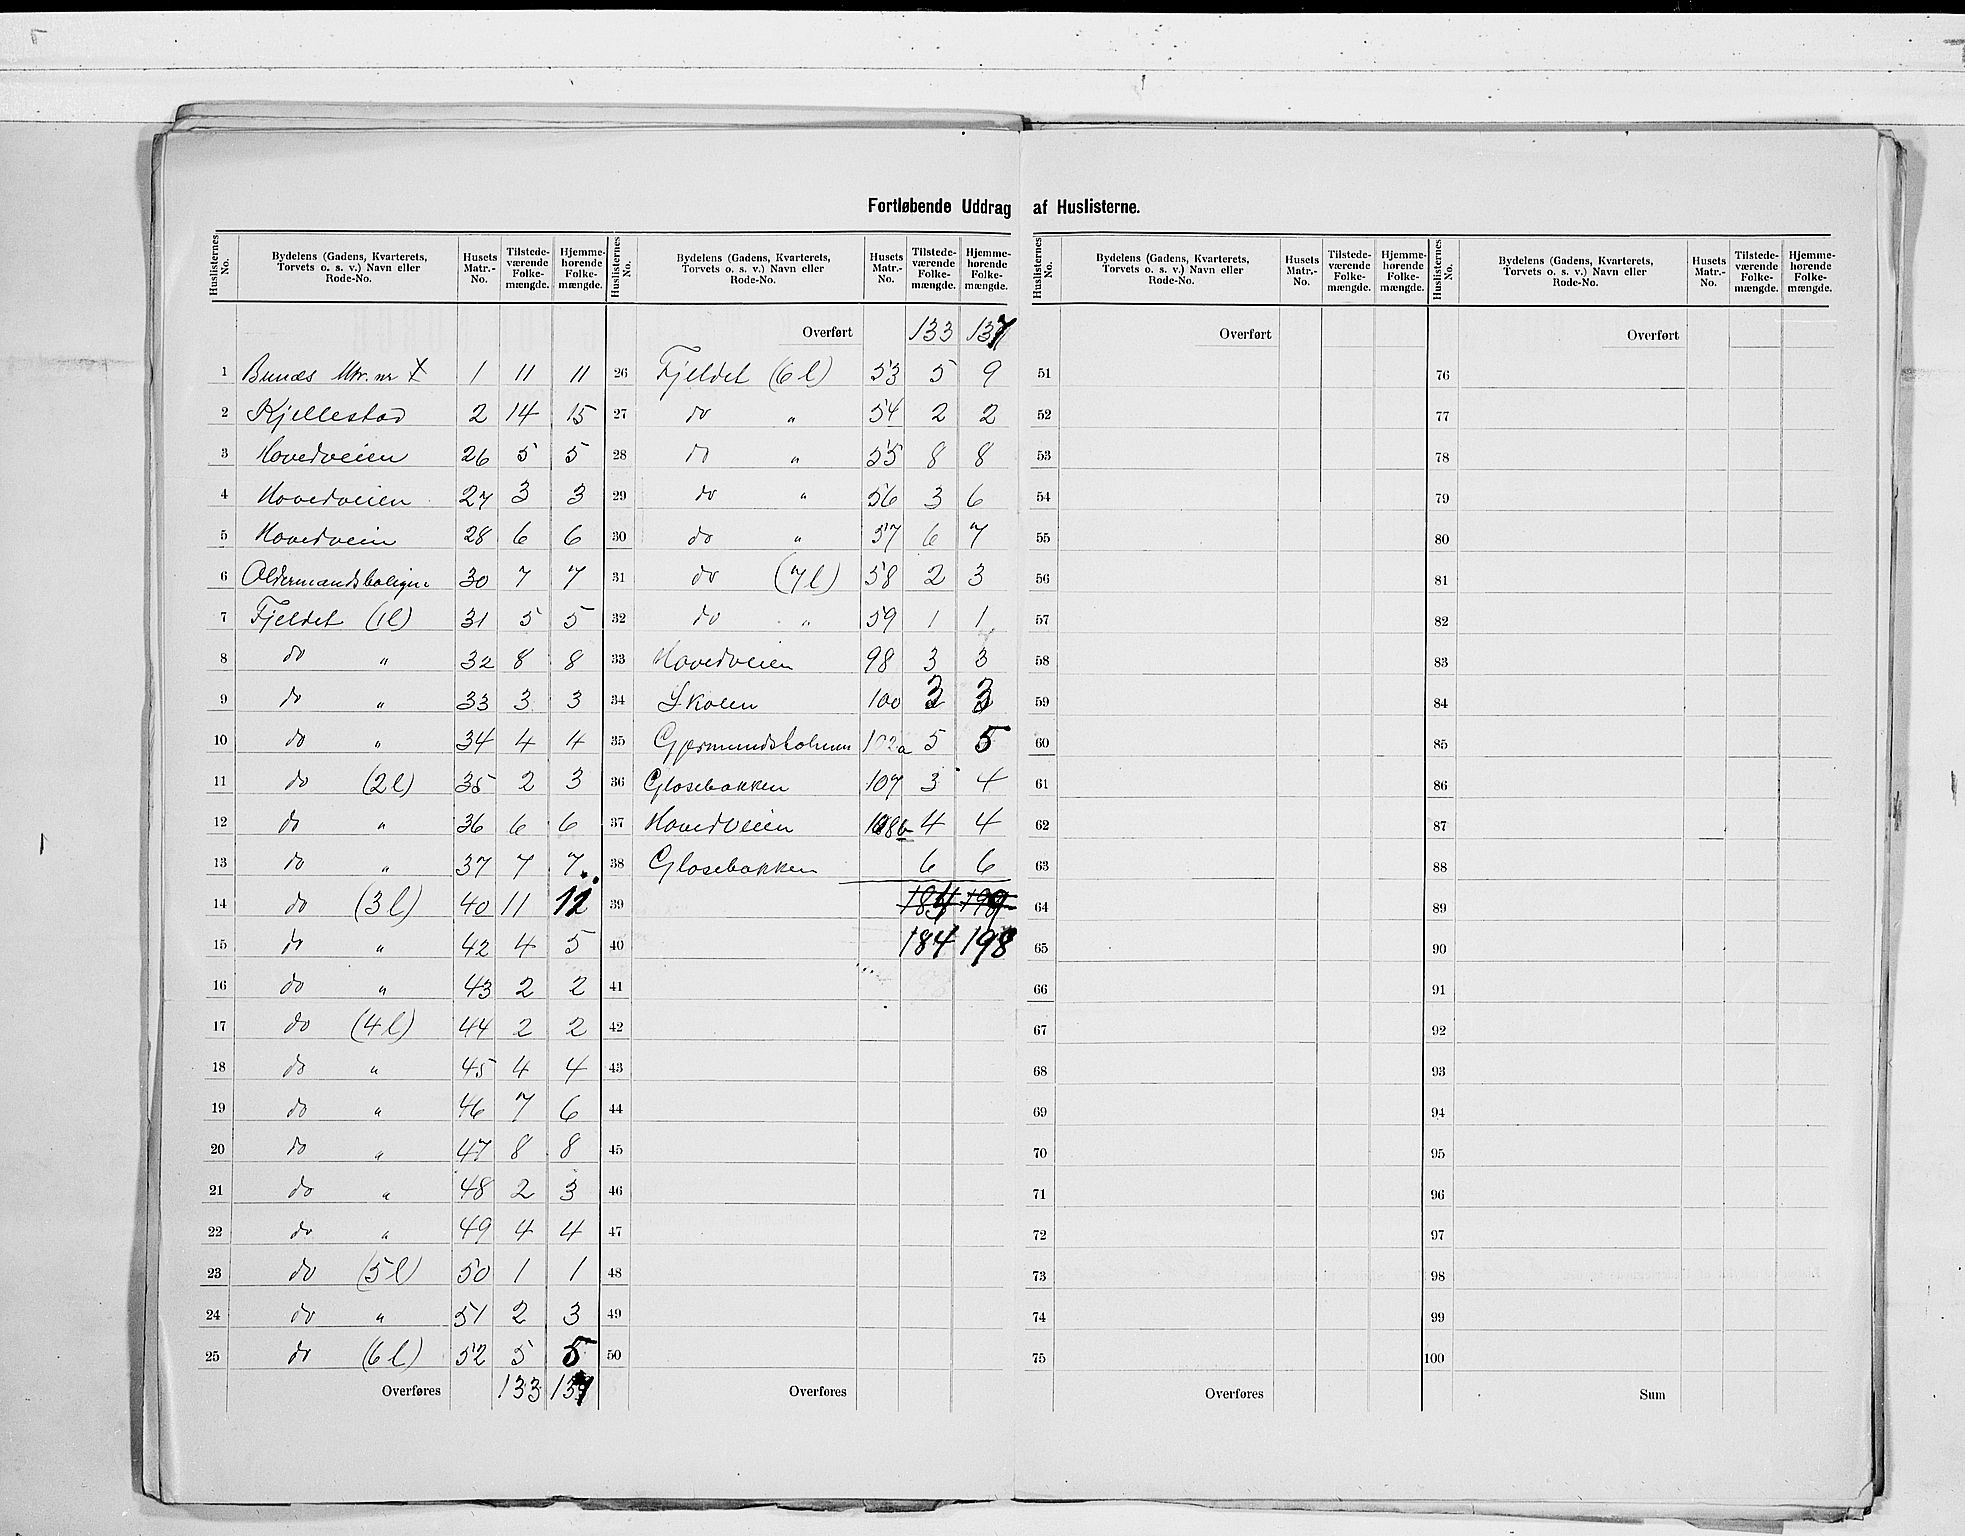 Fortløbende Uddrag af Huslisterne.
Huslisternes No. | Bydelens (Gadens, Kvarterets, Torvets o. s. v.) Navn eller Rode-No. | Husets Matr.-No. | Tilstedeværende Folkemængde. | Hjemmehørende Folkemængde.
1 Bunæs Mtr. nr 1 11 11
2 Kjellestad 2 14 15
3 Hovedveien 26 5 5
4 Hovedveien 27 3 3
5 Hovedveien 28 6 6
6 Oldermandsboligen 30 7 7
7 Fjeldet (1l) 31 5 5
8 do " 32 8 8
9 do " 33 3 3
10 do " 34 4 4
11 do (2l) 35 2 3
12 do " 36 6 6
13 do " 37 7 7
14 do (3l) 40 11 12
15 do " 42 4 5
16 do " 43 2 2
17 do (4l) 44 2 2
18 do " 45 4 4
19 do " 46 7 6
20 do " 47 8 8
21 do " 48 2 3
22 do " 49 4 4
23 do (5l) 50 1 1
24 do " 51 2 3
25 do (6l) 52 5 5
Overføres 133 137
Huslisternes No. | Bydelens (Gadens, Kvarterets, Torvets o. s. v.) Navn eller Rode-No. | Husets Matr.-No. | Tilstedeværende Folkemængde. | Hjemmehørende Folkemængde.
Overført 133 137
26 Fjeldet (6l) 53 5 9
27 do " 54 2 2
28 do " 55 8 8
29 do " 56 3 6
30 do " 57 6 7
31 do (7l) 58 2 3
32 do " 59 1 1
33 Hovedveien 98 3 3
34 Skolen 100 3 3
35 Gjermundsholmen 102a 5 5
36 Glosebakken 107 3 4
37 Hovedveien 108b 4 4
38 Glosebakken 6 6
39 184 199
40 184 198
41
42
43
44
45
46
47
48
49
50
Overføres
Huslisternes No. | Bydelens (Gadens, Kvarterets, Torvets o. s. v.) Navn eller Rode-No. | Husets Matr.-No. | Tilstedeværende Folkemængde. | Hjemmehørende Folkemængde.
Overført
51
52
53
54
55
56
57
58
59
60
61
62
63
64
65
66
67
68
69
70
71
72
73
74
75
Overføres
Huslisternes No. | Bydelens (Gadens, Kvarterets, Torvets o. s. v.) Navn eller Rode-No. | Husets Matr.-No. | Tilstedeværende Folkemængde. | Hjemmehørende Folkemængde.
Overført
76
77
78
79
80
81
82
83
84
85
86
87
88
89
90
91
92
93
94
95
96
97
98
99
100
Sum